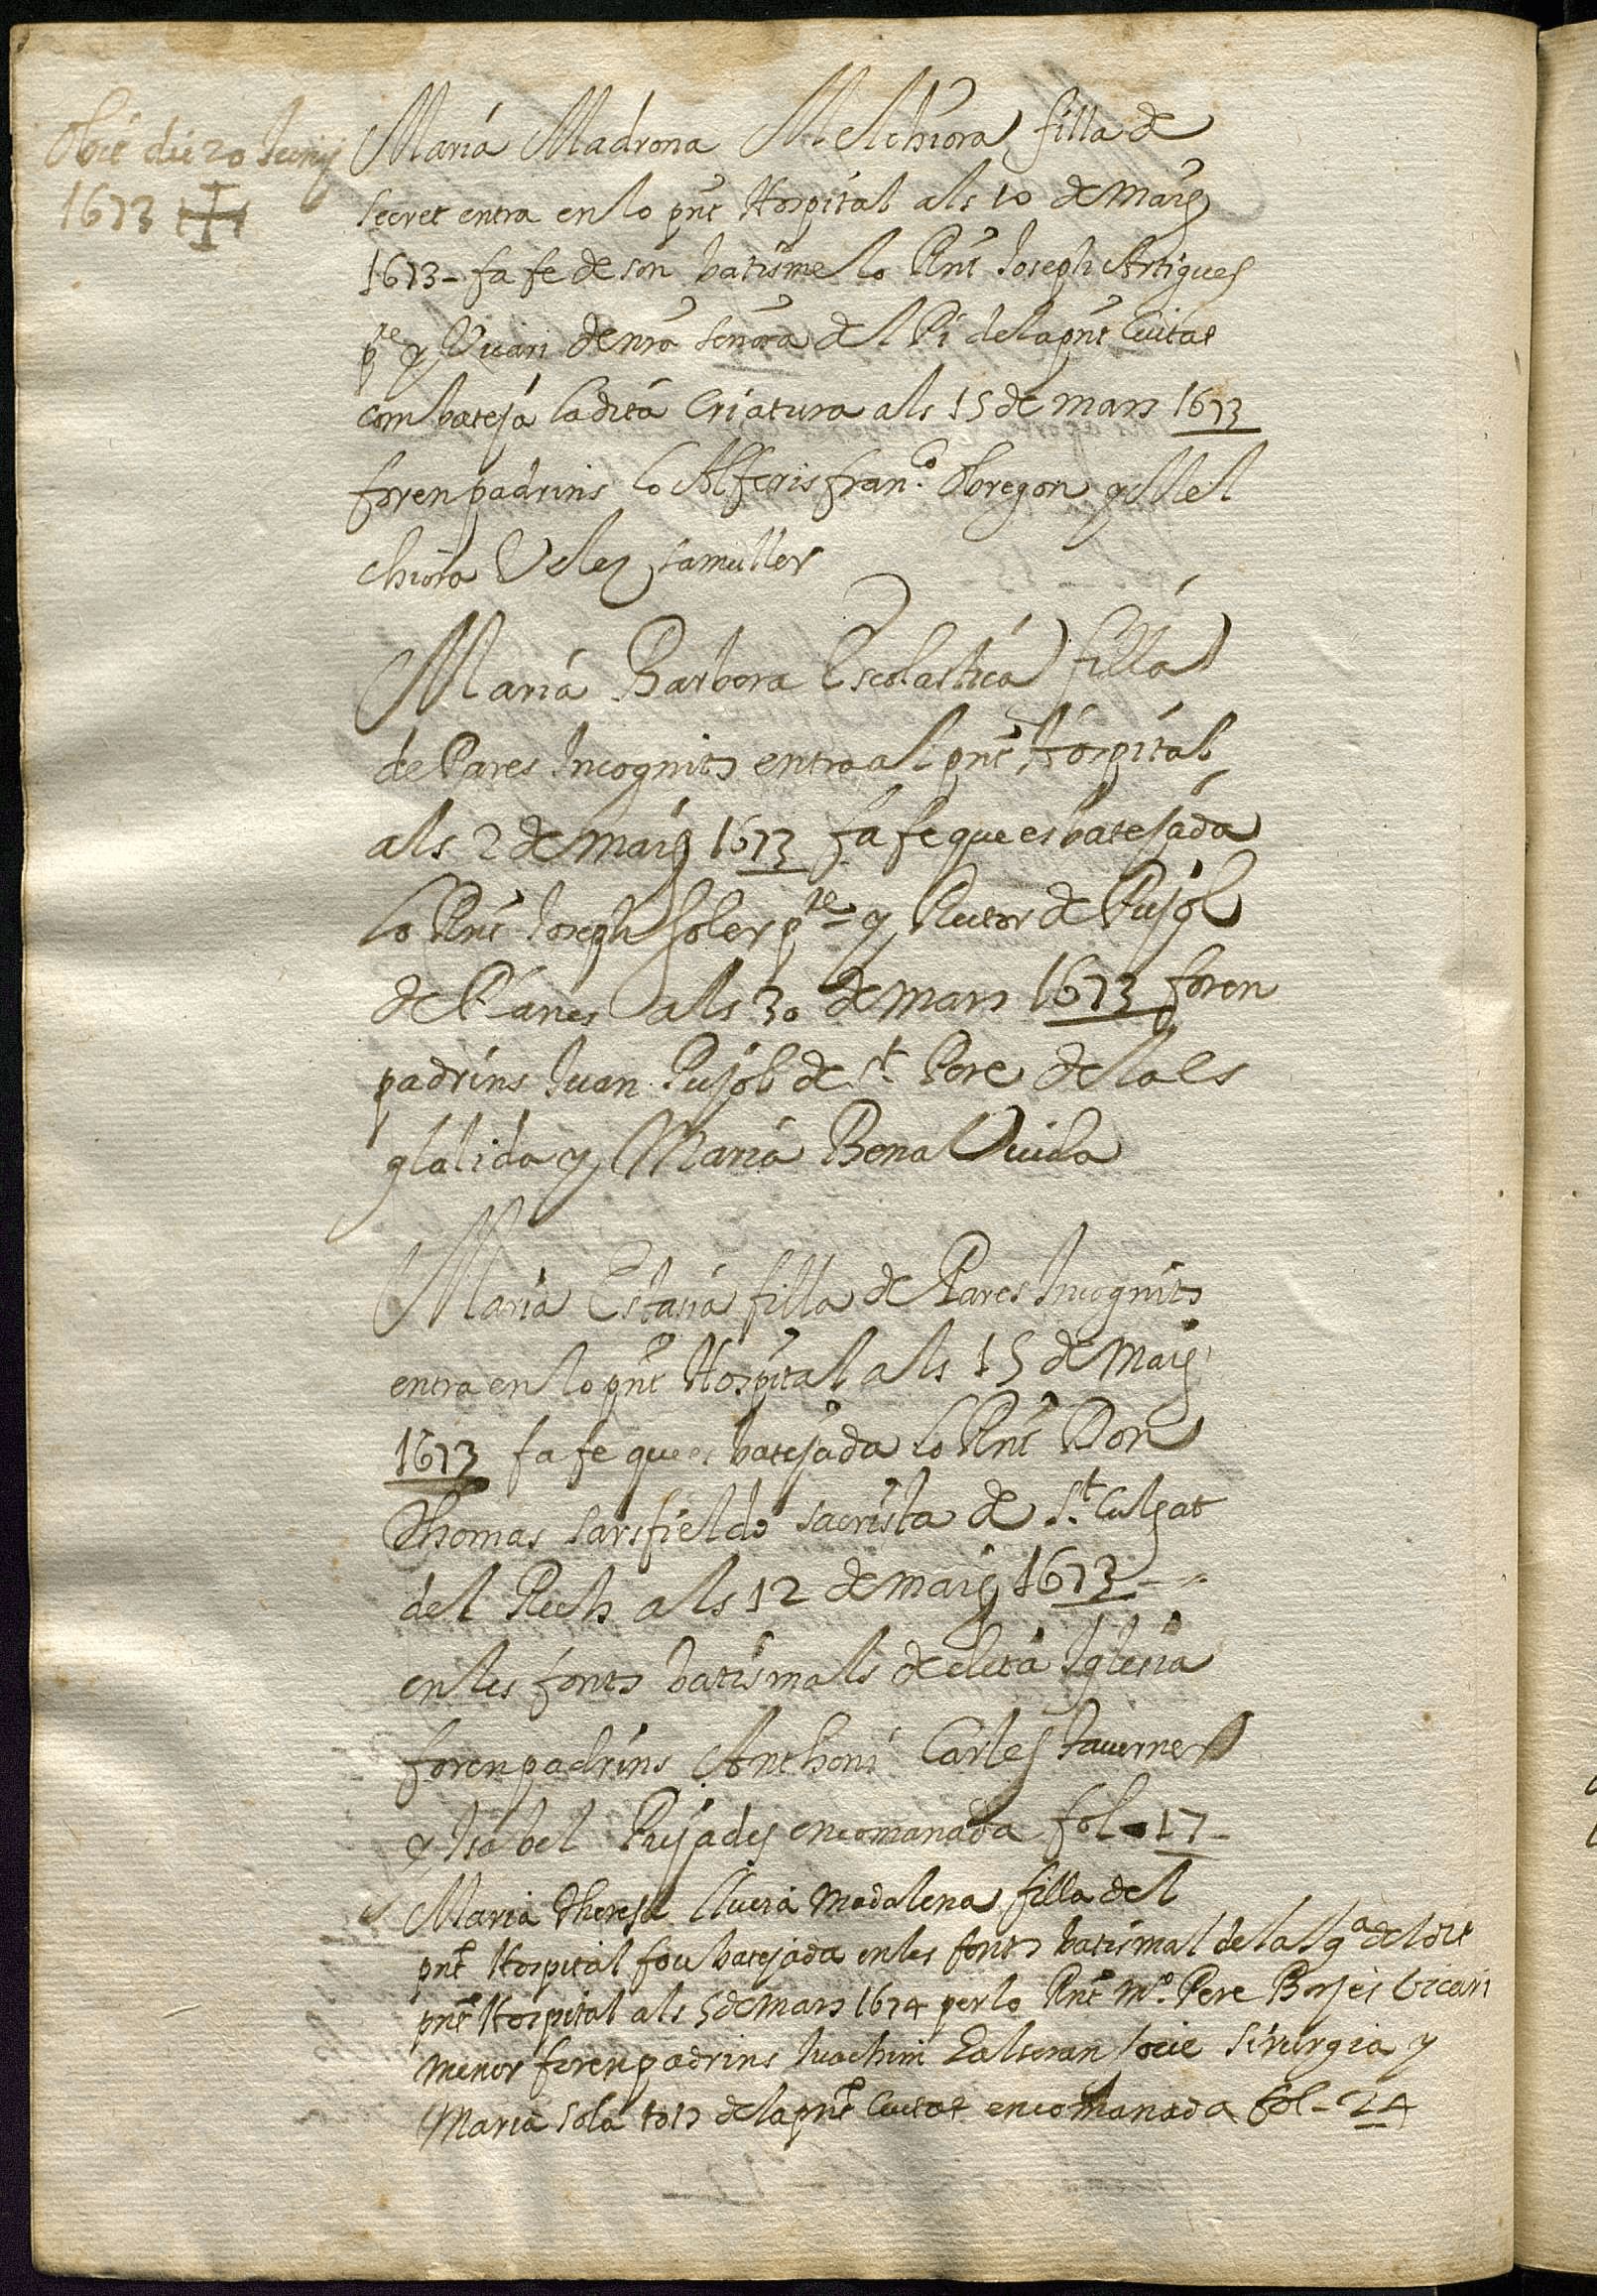 Obit die 20 Juny
1673
Maria Madrona Melchiora filla de
secret entra en lo pnt Hospital als 10 de Maig
1673 - fa fe de son batisme lo Rnt Joseph Artigues
pre y Vicari de nra senora del Pi de la pnt Ciutat
com bateja la dita Criatura als 15 de mars 1673
foren padrins lo Alferis Franco Obregon y Mel
chiora Velez sa muller
Maria Barbora Escolastica filla
de Pares Incognits entra al pnt Hospital
als 2 de Maig 1673 fa fe que es batejada
lo Rnt Joseph Soler pre y Rector de Pujol
de Planes als 30 de mars 1673 foren
padrins Juan Pujol de St. Pere de la Es
glalida y Maria Bona Vuida
Maria Estasia filla de Pares Incognits
entra en lo pnt Hospital als 15 de Maig
1673 fa fe que es batejada lo Rnt Don
Thomas Sarsfieldo sacrista de St. Culgat
del Rech als 12 de maig 1673 - -
en les fonts batismals de dita Iglesia
foren padrins Anthoni Carles taverner
y Isabel Pujades encomanada fol - 17 -
Maria Theresa Llucia Madalena filla del
pnt Hospital fou batejada en les fonts batismal de la Iga del dit
pnt Hospital als 5 de Mars 1674 per lo Rnt Mo. Pere Borjes Vicari
menor foren padrins Juachim Galseran Jove sirurgia y
Maria Sola tots de la pnt Ciutat encomanada fol - 24